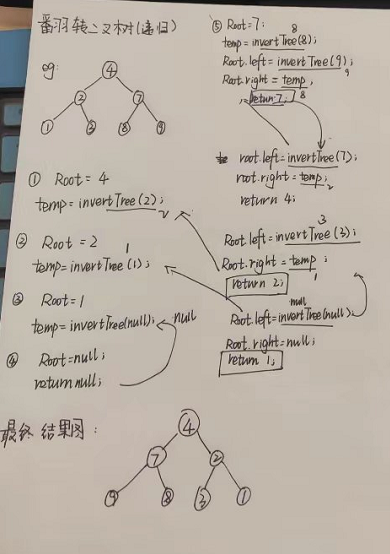 翻羽转二叉树(递归)
eg:
4
2 7
1 3 8 9
① Root = 4
temp = invertTree(2);
2
② Root = 2
1
temp = invertTree(1);
③ Root = 1
temp = invertTree(null);
null
④ Root = null;
return null;
⑤ Root = 7;
8
temp = invertTree(8);
Root.left = invertTree(9);
9
Root.right = temp,
8
return 7,
root.left = invertTree(7);
root.right = temp;
2
return 4;
3
Root.left = invertTree(3);
Root.right = temp;
1
return 2;
null
Root.left = invertTree(null);
Root.right = null;
return 1;
最终结果图:
4
7 2
9 8 3 1